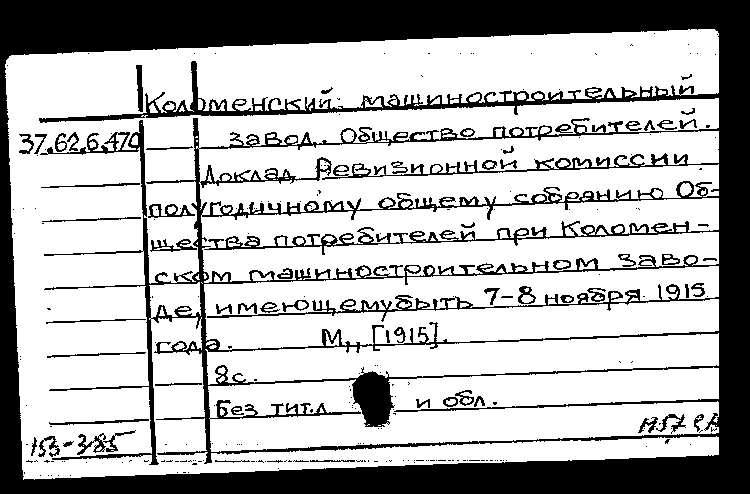 Коломенский машиностроительный
37.62.6.470 завод. Общество потребителей.
Доклад Ревизионной комиссии
полугодичному общему собранию Об-
щества потребителей при Коломен-
ском машиностроительном заво-
де, имеющему быть 7-8 ноября 1915
года. М., [1915].
8с.
Без тит.л и обл.
153-385 1957